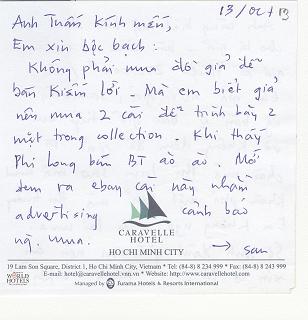 13/Oct
13
Anh Tuấn kính mến,
Em xin bộc bạch :
Không phải mua đồ giả để
bán kiếm lời. Mà em biết giả
nên mua 2 cái để trình bày 2
mặt trong collection. Khi thấy
Phi Long bán BT ào ào. Mới
đem ra ebay cái này nhằm
advertising cảnh báo
ng. mua.
→ sau
CARAVELLE
HOTEL
HO CHI MINH CITY
19 Lam Son Square, District 1, Ho Chi Minh City, Vietnam * Tel: (84-8) 8 234 999 * Fax: (84-8) 8 243 999
E-mail: hotel@caravellehotel.vnn.vn * Website: http://www.caravellehotel.com
Managed by Furama Hotels & Resorts International
WORLD
HOTELS